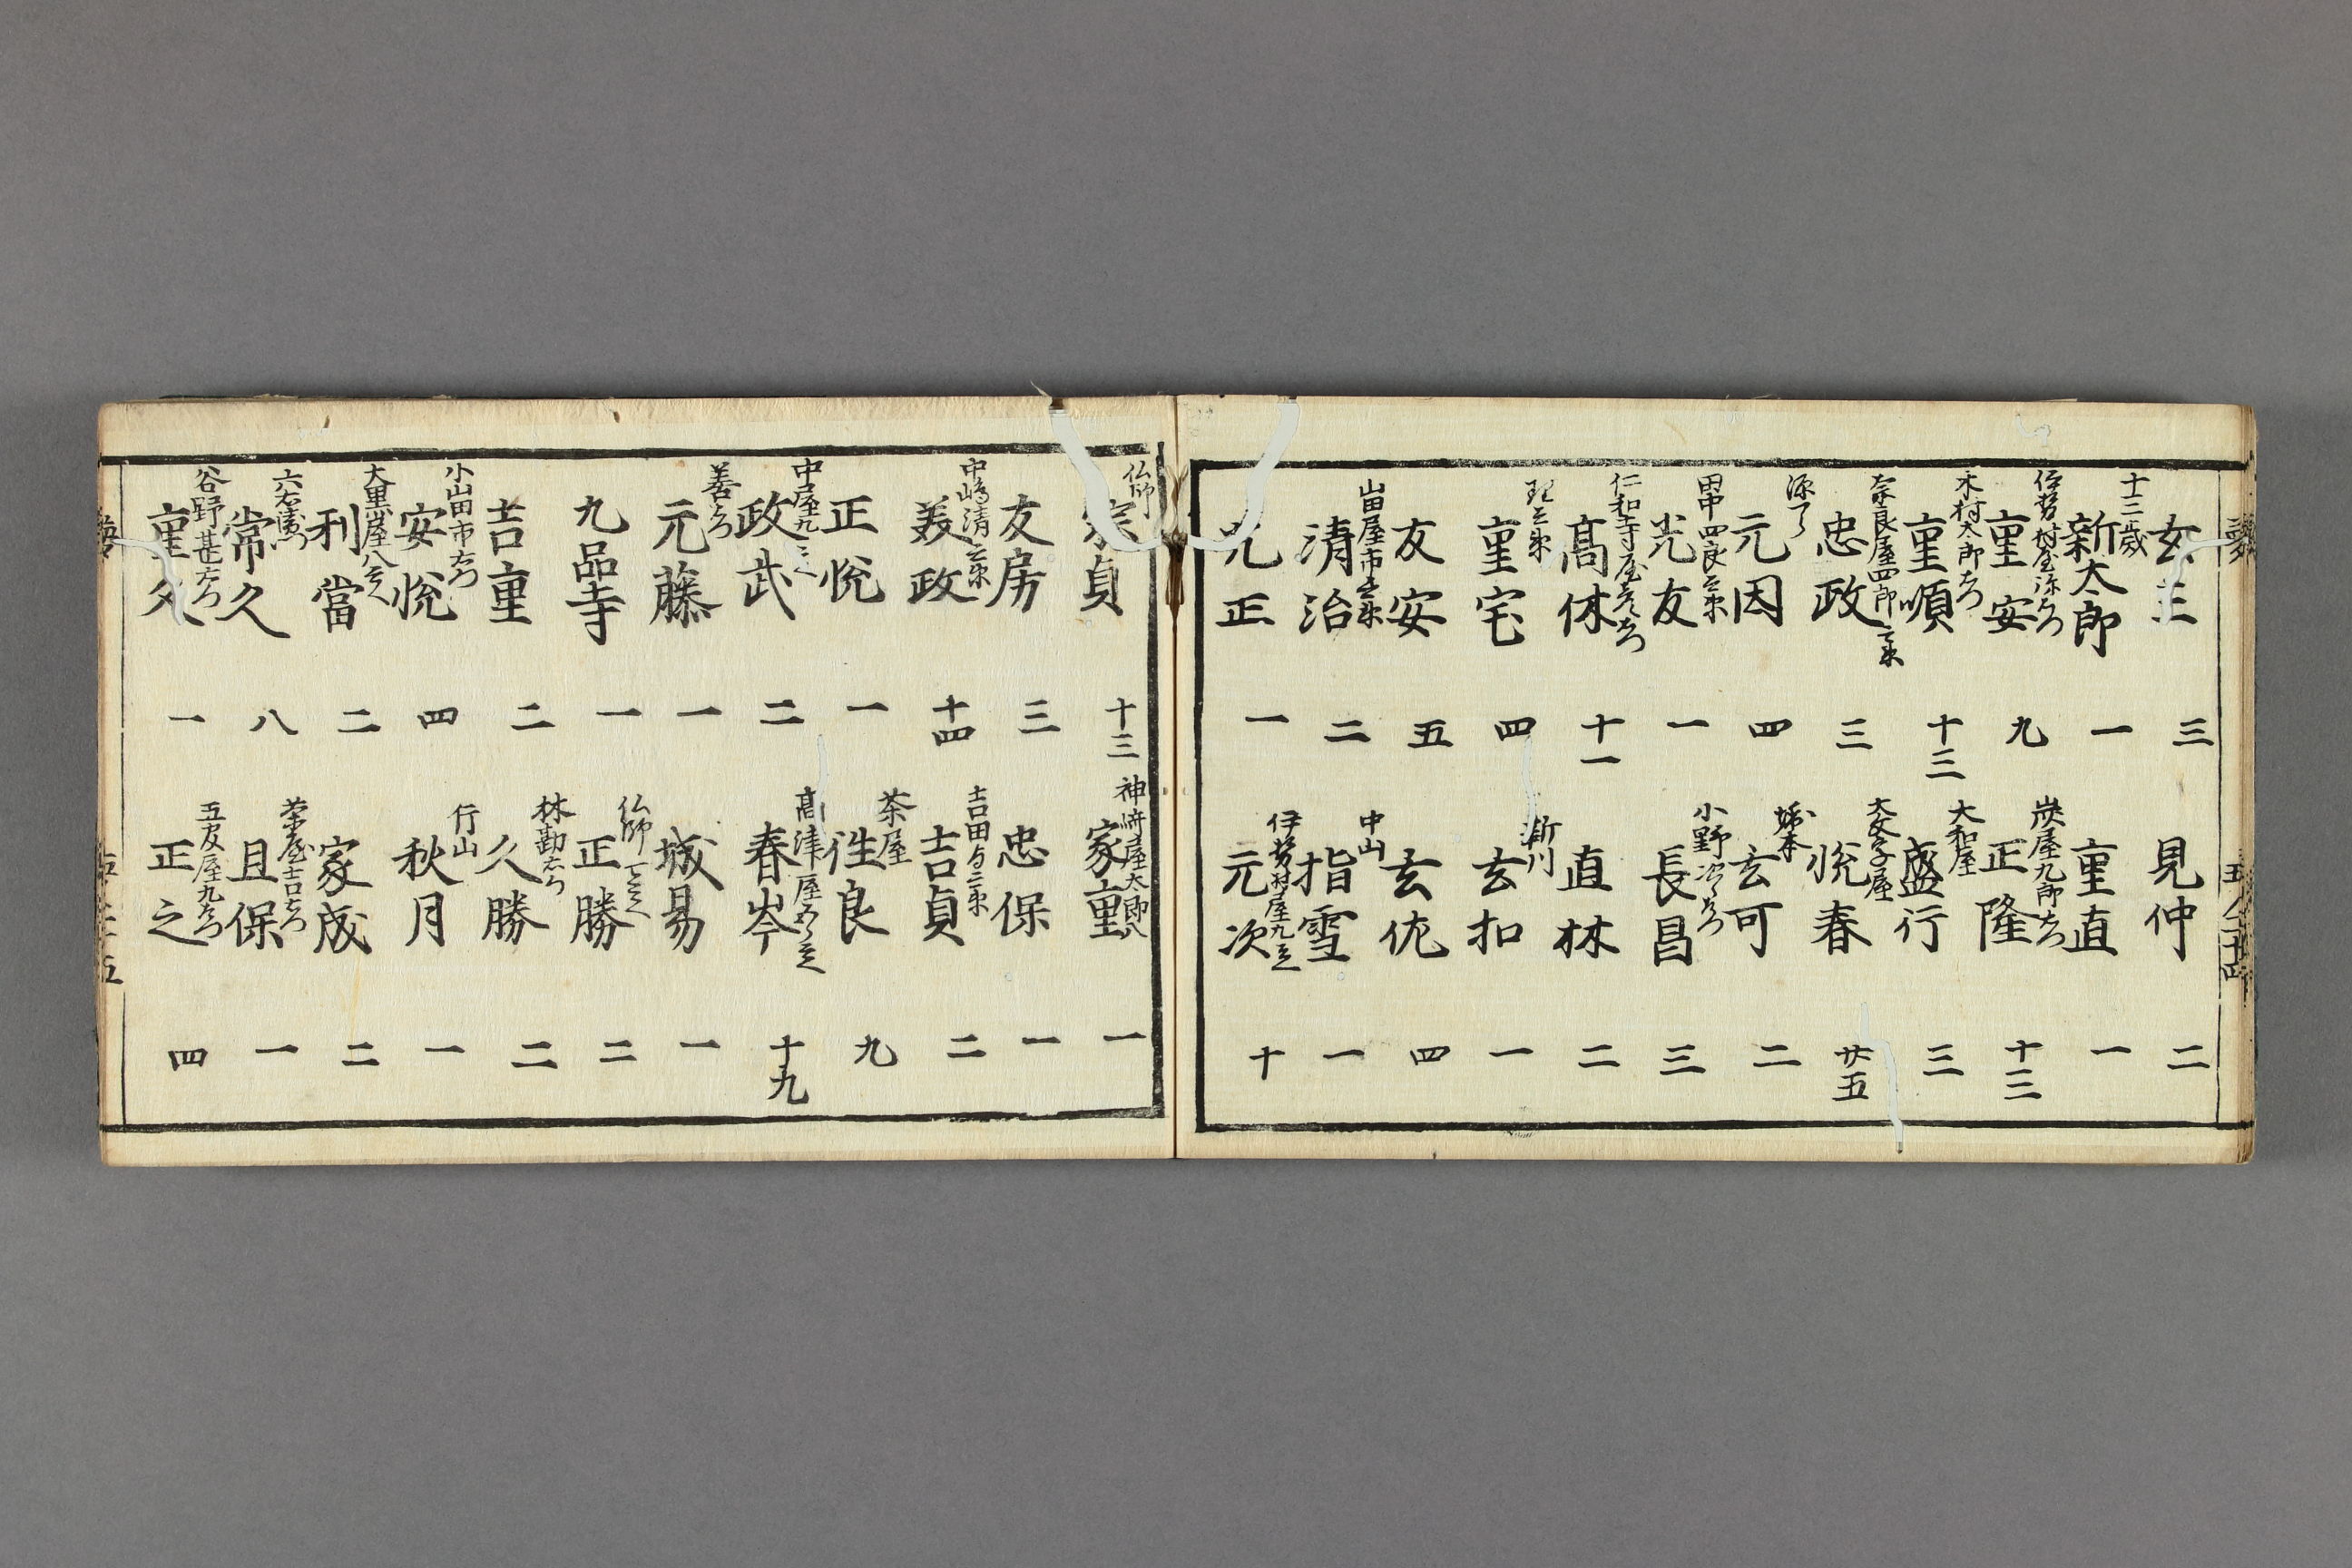 玄三 三
十二歳
新太郎 一
重安 九
木村太郎右
重順 十三
奈良屋四郎
忠政 三
源了
元因 四
田中四良兵衛
光友 一
仁和寺屋
高休 十一
重宅 四
友安 五
山田屋市兵衛
清治 二
光正 一
見仲 二
重直 一
炭屋九郎右
正隆 十三
大和屋
盛行 三
大文字屋
悦春 廿五
玄可 二
小野
長昌 三
直林 二
玄加 一
玄佐 四
中山
指雪 一
伊勢村屋九兵
元次 十
仏師
宗貞 十三
友房 三
中嶋清兵衛
美政 十四
正悦 一
中屋九
政武 二
元藤 一
九品寺 一
吉重 二
小山田市右
安悦 四
大黒屋八兵
利當 二
常久 八
谷野甚右
重久 一
神崎屋太郎八
家重 一
忠保 一
吉田与三衛
吉貞 二
茶屋
性良 九
高津屋
春岑 十九
城易 一
仏師
正勝 二
林勘右
久勝 二
行山
秋月 一
家成 二
茶屋吉右
且保 一
正之 四